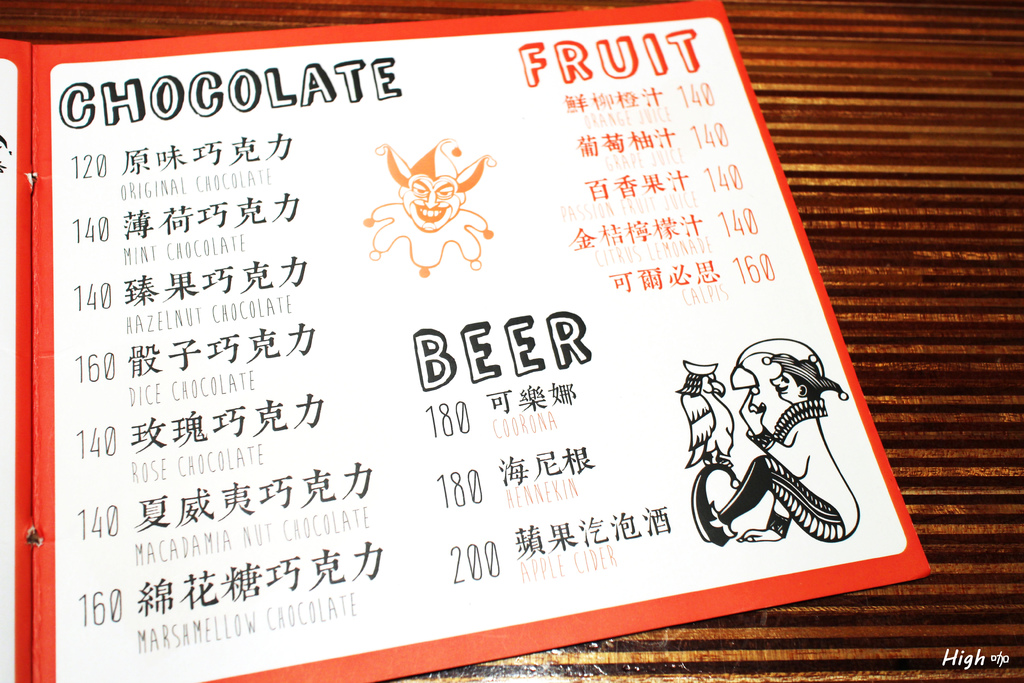 CHOCOLATE
120 原味巧克力
ORIGINAL CHOCOLATE
140 薄荷巧克力
MINT CHOCOLATE
140 臻果巧克力
HAZELNUT CHOCOLATE
160 骰子巧克力
DICE CHOCOLATE
140 玫瑰巧克力
ROSE CHOCOLATE
140 夏威夷巧克力
MACADAMIA NUT CHOCOLATE
160 綿花糖巧克力
MARSHMELLOW CHOCOLATE
FRUIT
鮮柳橙汁 140
ORANGE JUICE
葡萄柚汁 140
GRAPE JUICE
百香果汁 140
PASSION FRUIT JUICE
金桔檸檬汁 140
CITRUS LEMONADE
可爾必思 160
CALPIS
BEER
180 可樂娜
COORONA
180 海尼根
HENNEKIN
200 蘋果汽泡酒
APPLE CIDER
High 咖